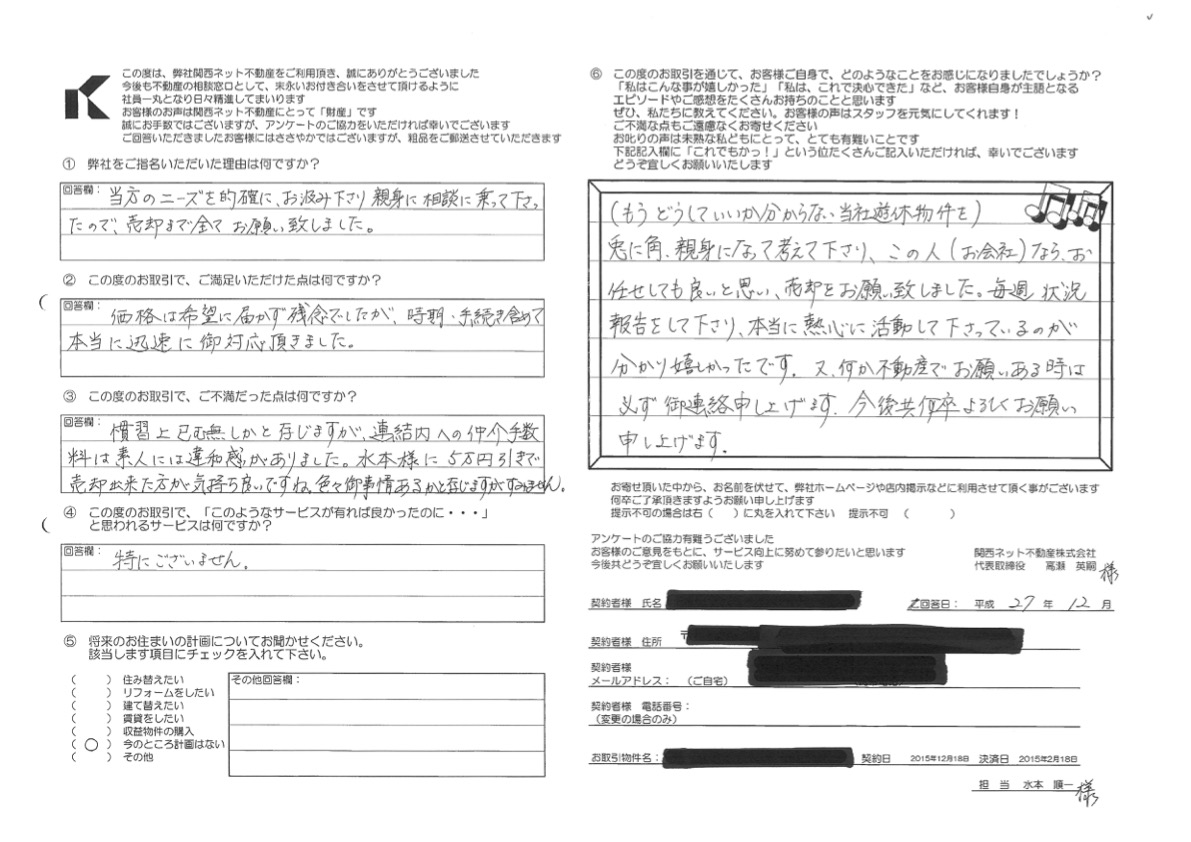 この度は、弊社関西ネット不動産をご利用頂き、誠にありがとうございました
今後も不動産の相談窓口として、末永いお付き合いをさせて頂けるように
社員一丸となり日々精進してまいります
お客様のお声は関西ネット不動産にとって「財産」です
誠にお手数ではございますが、アンケートのご協力をいただければ幸いでございます
ご回答いただきましたお客様にはささやかではございますが、粗品をご郵送させていただきます
① 弊社をご指名いただいた理由は何ですか?
回答欄:
当方のニーズを的確に、お汲み下さり親身に相談に乗って下さっ
たので、売却まで全てお願い致しました。
② この度のお取引で、ご満足いただけた点は何ですか?
回答欄:
価格は希望に届かず残念でしたが、時期・手続き含めて
本当に迅速に御対応頂きました。
③ この度のお取引で、ご不満だった点は何ですか?
回答欄:
慣習上已む無しかと存じますが、連結内への仲介手数
料は素人には違和感がありました。水本様に5万円引きで
売却出来た方が気持ち良いですね。色々御事情あるかと存じますがすみません。
④ この度のお取引で、「このようなサービスが有れば良かったのに・・・」
と思われるサービスは何ですか?
回答欄:
特にございません。
⑤ 将来のお住まいの計画についてお聞かせください。
該当します項目にチェックを入れて下さい。
( ) 住み替えたい
( ) リフォームをしたい
( ) 建て替えたい
( ) 賃貸をしたい
( ) 収益物件の購入
(○) 今のところ計画はない
( ) その他
その他回答欄:
⑥ この度のお取引を通じて、お客様ご自身で、どのようなことをお感じになりましたでしょうか?
「私はこんな事が嬉しかった」「私は、これで決心できた」など、お客様自身が主語となる
エピソードやご感想をたくさんお持ちのことと思います
ぜひ、私たちに教えてください。お客様の声はスタッフを元気にしてくれます!
ご不満な点もご遠慮なくお寄せください
お叱りの声は未熟な私どもにとって、とても有難いことです
下記記入欄に「これでもかっ!」という位たくさんご記入いただければ、幸いでございます
どうぞ宜しくお願いいたします
(もうどうしていいか分からない当社遊休物件を)
兎に角、親身になって考えて下さり、この人(お会社)なら、お
任せしても良いと思い、売却をお願い致しました。毎週状況
報告をして下さり、本当に熱心に活動して下さっているのが
分かり嬉しかったです。又、何か不動産でお願いある時は
必ず御連絡申し上げます。今後共何卒よろしくお願い
申し上げます。
お寄せ頂いた中から、お名前を伏せて、弊社ホームページや店内掲示などに利用させて頂く事がございます
何卒ご了承頂きますようお願い申し上げます
提示不可の場合は右( )に丸を入れて下さい 提示不可 ( )
アンケートのご協力有難うございました
お客様のご意見をもとに、サービス向上に努めて参りたいと思います
今後共どうぞ宜しくお願いいたします
関西ネット不動産株式会社
代表取締役 高瀬 英嗣 様
契約者様 氏名
ご回答日: 平成 27 年 12 月
契約者様 住所 〒
契約者様
メールアドレス: (ご自宅)
契約者様 電話番号:
(変更の場合のみ)
お取引物件名: 契約日 2015年12月18日 決済日 2015年2月18日
担 当 水本 順一 様